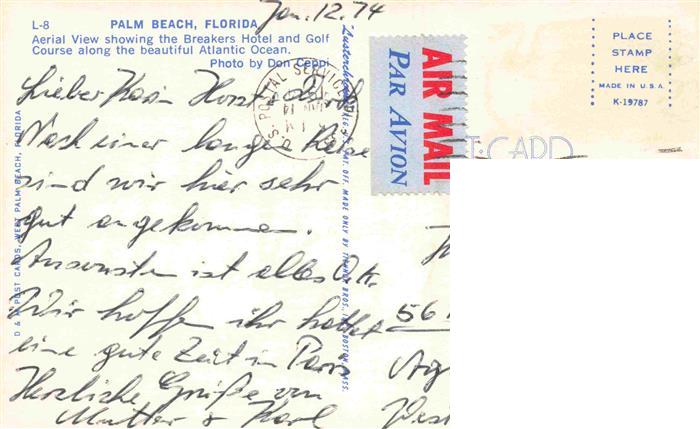 Jan. 12. 74
L-8 PALM BEACH, FLORIDA
Aerial View showing the Breakers Hotel and Golf
Course along the beautiful Atlantic Ocean.
Photo by Don Ceppi
Lieber Horst
Nach einer langen Reise
sind wir hier sehr
gut angekommen.
Ansonsten ist alles O.k.
Wir hoffen ihr hattet
eine gute Zeit in
Herzliche Grüße von
Mutter & Karl
D & H POST CARDS, WEST PALM BEACH, FLORIDA
Lusterchrome REG. U.S. PAT. OFF. MADE ONLY BY TICHNOR BROS., BOSTON, MASS.
U.S. POSTAL SERVICE
AIR MAIL
PAR AVION
PLACE
STAMP
HERE
MADE IN U.S.A.
K-19787
POST CARD
56